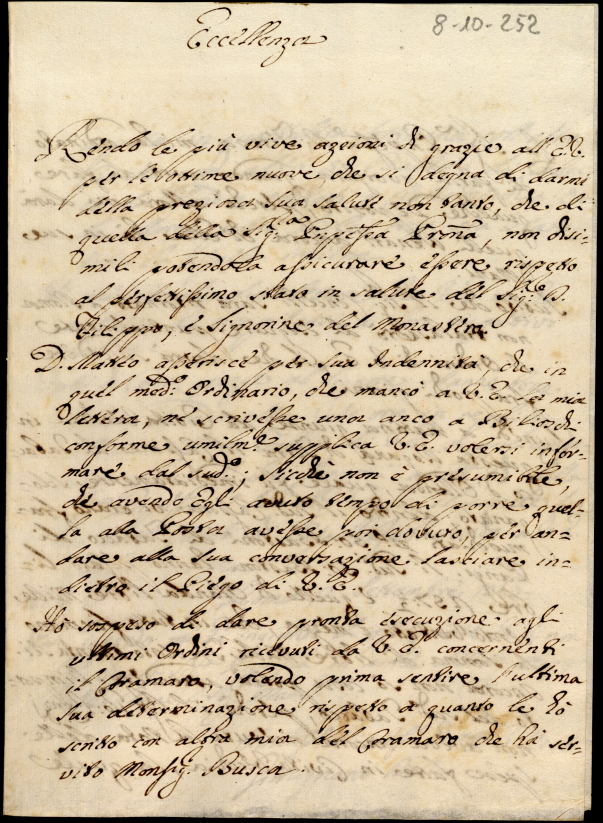 8-10-252
Eccellenza
Rendo le più vive azzioni di grazie all'E.V.
per le ottime nuove che si degna di darmi
della preziosa sua salute non tanto, che di
quella della Sig.ra Pnpessa Prōna, non disi-
mili potendola assicurare essere rispetto
al perfettissimo stato in salute del Sig.re D.
Filippo, e Signorine del Monastero
D. Matteo asserisce per sua Indennità, che in
quel med.o Ordinario, che mancò a V.E. la mia
lettera, ne scrivesse una anco a
conforme umilm.e supplica V.E. volersi infor-
mare dal sud.o; sicchè non è presumibile,
che avendo Egli avuto tempo di porre quel-
la alla Posta avesse poi dovuto, per an-
dare alla sua conversazione lasciare in-
dietro il Piego di V.E.
Ho sospeso di dare pronta esecuzione agli
ultimi Ordini ricevuti da V.E. concernenti
il Cramaro, volendo prima sentire l'ultima
sua determinazione rispetto a quanto le hò
scritto con altra mia del Cramaro che ha ser-
vito Monsig.r Busca.